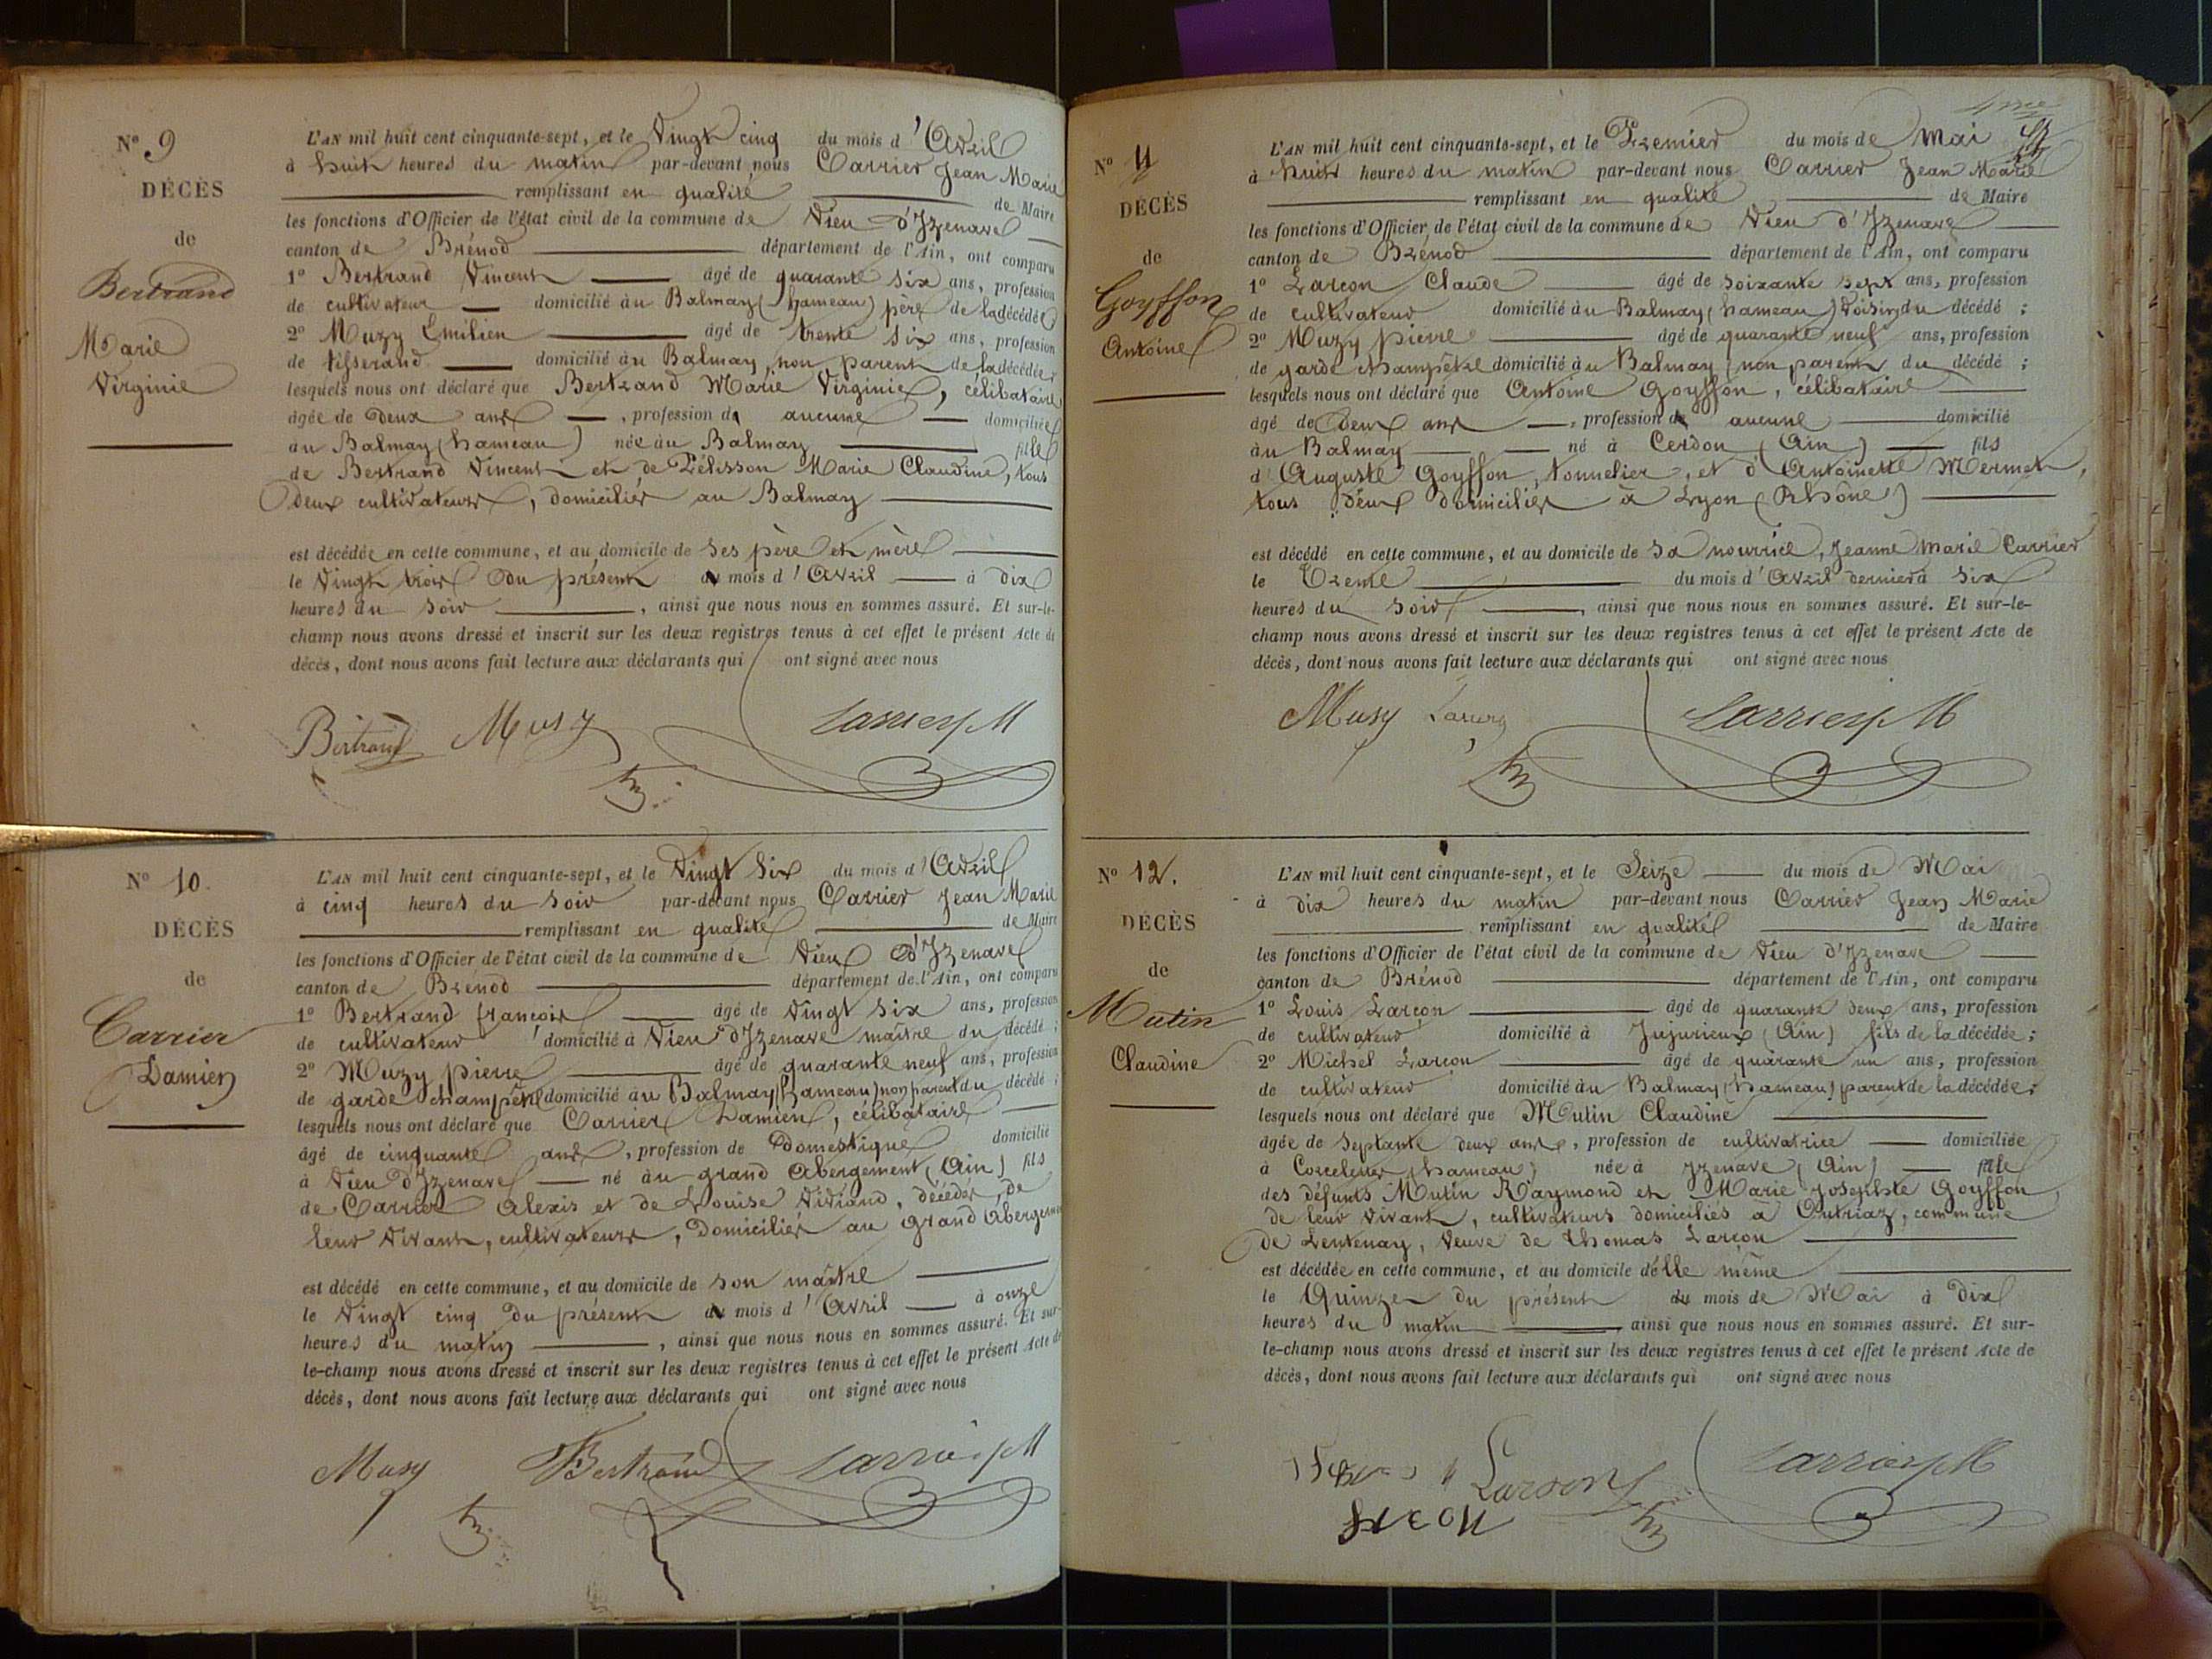 Nº 9
DÉCÈS
de
Bertrand
Marie
Virginie
L'AN mil huit cent cinquante-sept, et le Vingt cinq du mois d'Avril
à huit heures du matin par-devant nous Carrier Jean Marie
remplissant en qualité de Maire
les fonctions d'Officier de l'état civil de la commune de Vieu d'Izenave
canton de Brénod département de l'Ain, ont comparu
1º Bertrand Vincent âgé de quarante six ans, profession
de cultivateur domicilié au Balmay (hameau) père de la décédée
2º Muzy Emilien âgé de trente six ans, profession
de tisserand domicilié au Balmay, non parent de la décédée;
lesquels nous ont déclaré que Bertrand Marie Virginie, célibataire
âgée de Deux ans, profession d aucune domiciliée
au Balmay (hameau) née au Balmay fille
de Bertrand Vincent et de Pélisson Marie Claudine, tous
Deux cultivateurs, domiciliés au Balmay
est décédée en cette commune, et au domicile de ses père et mère
le Vingt trois du présent mois d'Avril à dix
heures du soir, ainsi que nous nous en sommes assuré. Et sur-le-
champ nous avons dressé et inscrit sur les deux registres tenus à cet effet le présent Acte de
décès, dont nous avons fait lecture aux déclarants qui ont signé avec nous
Bertrand Musy Carrier J M
Nº 10.
DÉCÈS
de
Carrier
Damien
L'AN mil huit cent cinquante-sept, et le Vingt Six du mois d'Avril
à cinq heures du soir par-devant nous Carrier Jean Marie
remplissant en qualité de Maire
les fonctions d'Officier de l'état civil de la commune de Vieu d'Izenave
canton de Brénod département de l'Ain, ont comparu
1º Bertrand françois âgé de vingt six ans, profession
de cultivateur domicilié à Vieu d'Izenave maître du décédé;
2º Muzy pierre âgé de quarante neuf ans, profession
de garde champêtre domicilié au Balmay (hameau) non parent du décédé;
lesquels nous ont déclaré que Carrier Damien, célibataire
âgé de cinquante ans, profession de Domestique domicilié
à Vieu d'Izenave né au grand Abergement (Ain) fils
de Carrier Alexis et de Louise Viviand, décédés, de
leur vivant, cultivateurs, Domiciliés au grand Abergement
est décédé en cette commune, et au domicile de son maître
le Vingt cinq du présent mois d'Avril à onze
heures du matin, ainsi que nous nous en sommes assuré. Et sur-
le-champ nous avons dressé et inscrit sur les deux registres tenus à cet effet le présent Acte de
décès, dont nous avons fait lecture aux déclarants qui ont signé avec nous
Musy Bertrand Carrier J M
4me
Nº 11
DÉCÈS
de
Goyffon
Antoine
L'AN mil huit cent cinquante-sept, et le Premier du mois de Mai
à huit heures du matin par-devant nous Carrier Jean Marie
remplissant en qualité de Maire
les fonctions d'Officier de l'état civil de la commune de Vieu d'Izenave
canton de Brénod département de l'Ain, ont comparu
1º Larçon Claude âgé de soixante sept ans, profession
de cultivateur domicilié au Balmay (hameau) Voisin du décédé;
2º Muzy pierre âgé de quarante neuf ans, profession
de garde champêtre domicilié au Balmay, non parent du décédé;
lesquels nous ont déclaré que Antoine Goyffon, célibataire
âgé de Deux ans, profession d aucune domicilié
au Balmay né à Cerdon (Ain) fils
d'Auguste Goyffon, tonnelier, et d'Antoinette Mermet,
tous Deux domiciliés à Lyon (Rhône)
est décédé en cette commune, et au domicile de sa nourrice, Jeanne Marie Carrier
le Trente du mois d'Avril dernier à six
heures du soir, ainsi que nous nous en sommes assuré. Et sur-le-
champ nous avons dressé et inscrit sur les deux registres tenus à cet effet le présent Acte de
décès, dont nous avons fait lecture aux déclarants qui ont signé avec nous
Musy Carrier J M
Nº 12.
DÉCÈS
de
Mutin
Claudine
L'AN mil huit cent cinquante-sept, et le Seize du mois de Mai
à dix heures du matin par-devant nous Carrier Jean Marie
remplissant en qualité de Maire
les fonctions d'Officier de l'état civil de la commune de Vieu d'Izenave
canton de Brénod département de l'Ain, ont comparu
1º Louis Larçon âgé de quarante deux ans, profession
de cultivateur domicilié à Jujurieux (Ain) fils de la décédée;
2º Michel Larçon âgé de quarante un ans, profession
de cultivateur domicilié au Balmay (hameau) parent de la décédée;
lesquels nous ont déclaré que Mutin Claudine
âgée de septante deux ans, profession de cultivatrice domiciliée
à Corcelette (hameau) née à Izenave (Ain) fille
des défunts Mutin Raymond et Marie Josephte Goyffon,
de leur vivant, cultivateurs domiciliés à Outriaz, commune
de Lentenay, veuve de Thomas Larçon
est décédée en cette commune, et au domicile d'elle même
le Quinze du présent mois de Mai à Dix
heures du matin, ainsi que nous nous en sommes assuré. Et sur-
le-champ nous avons dressé et inscrit sur les deux registres tenus à cet effet le présent Acte de
décès, dont nous avons fait lecture aux déclarants qui ont signé avec nous
Larson Carrier J M